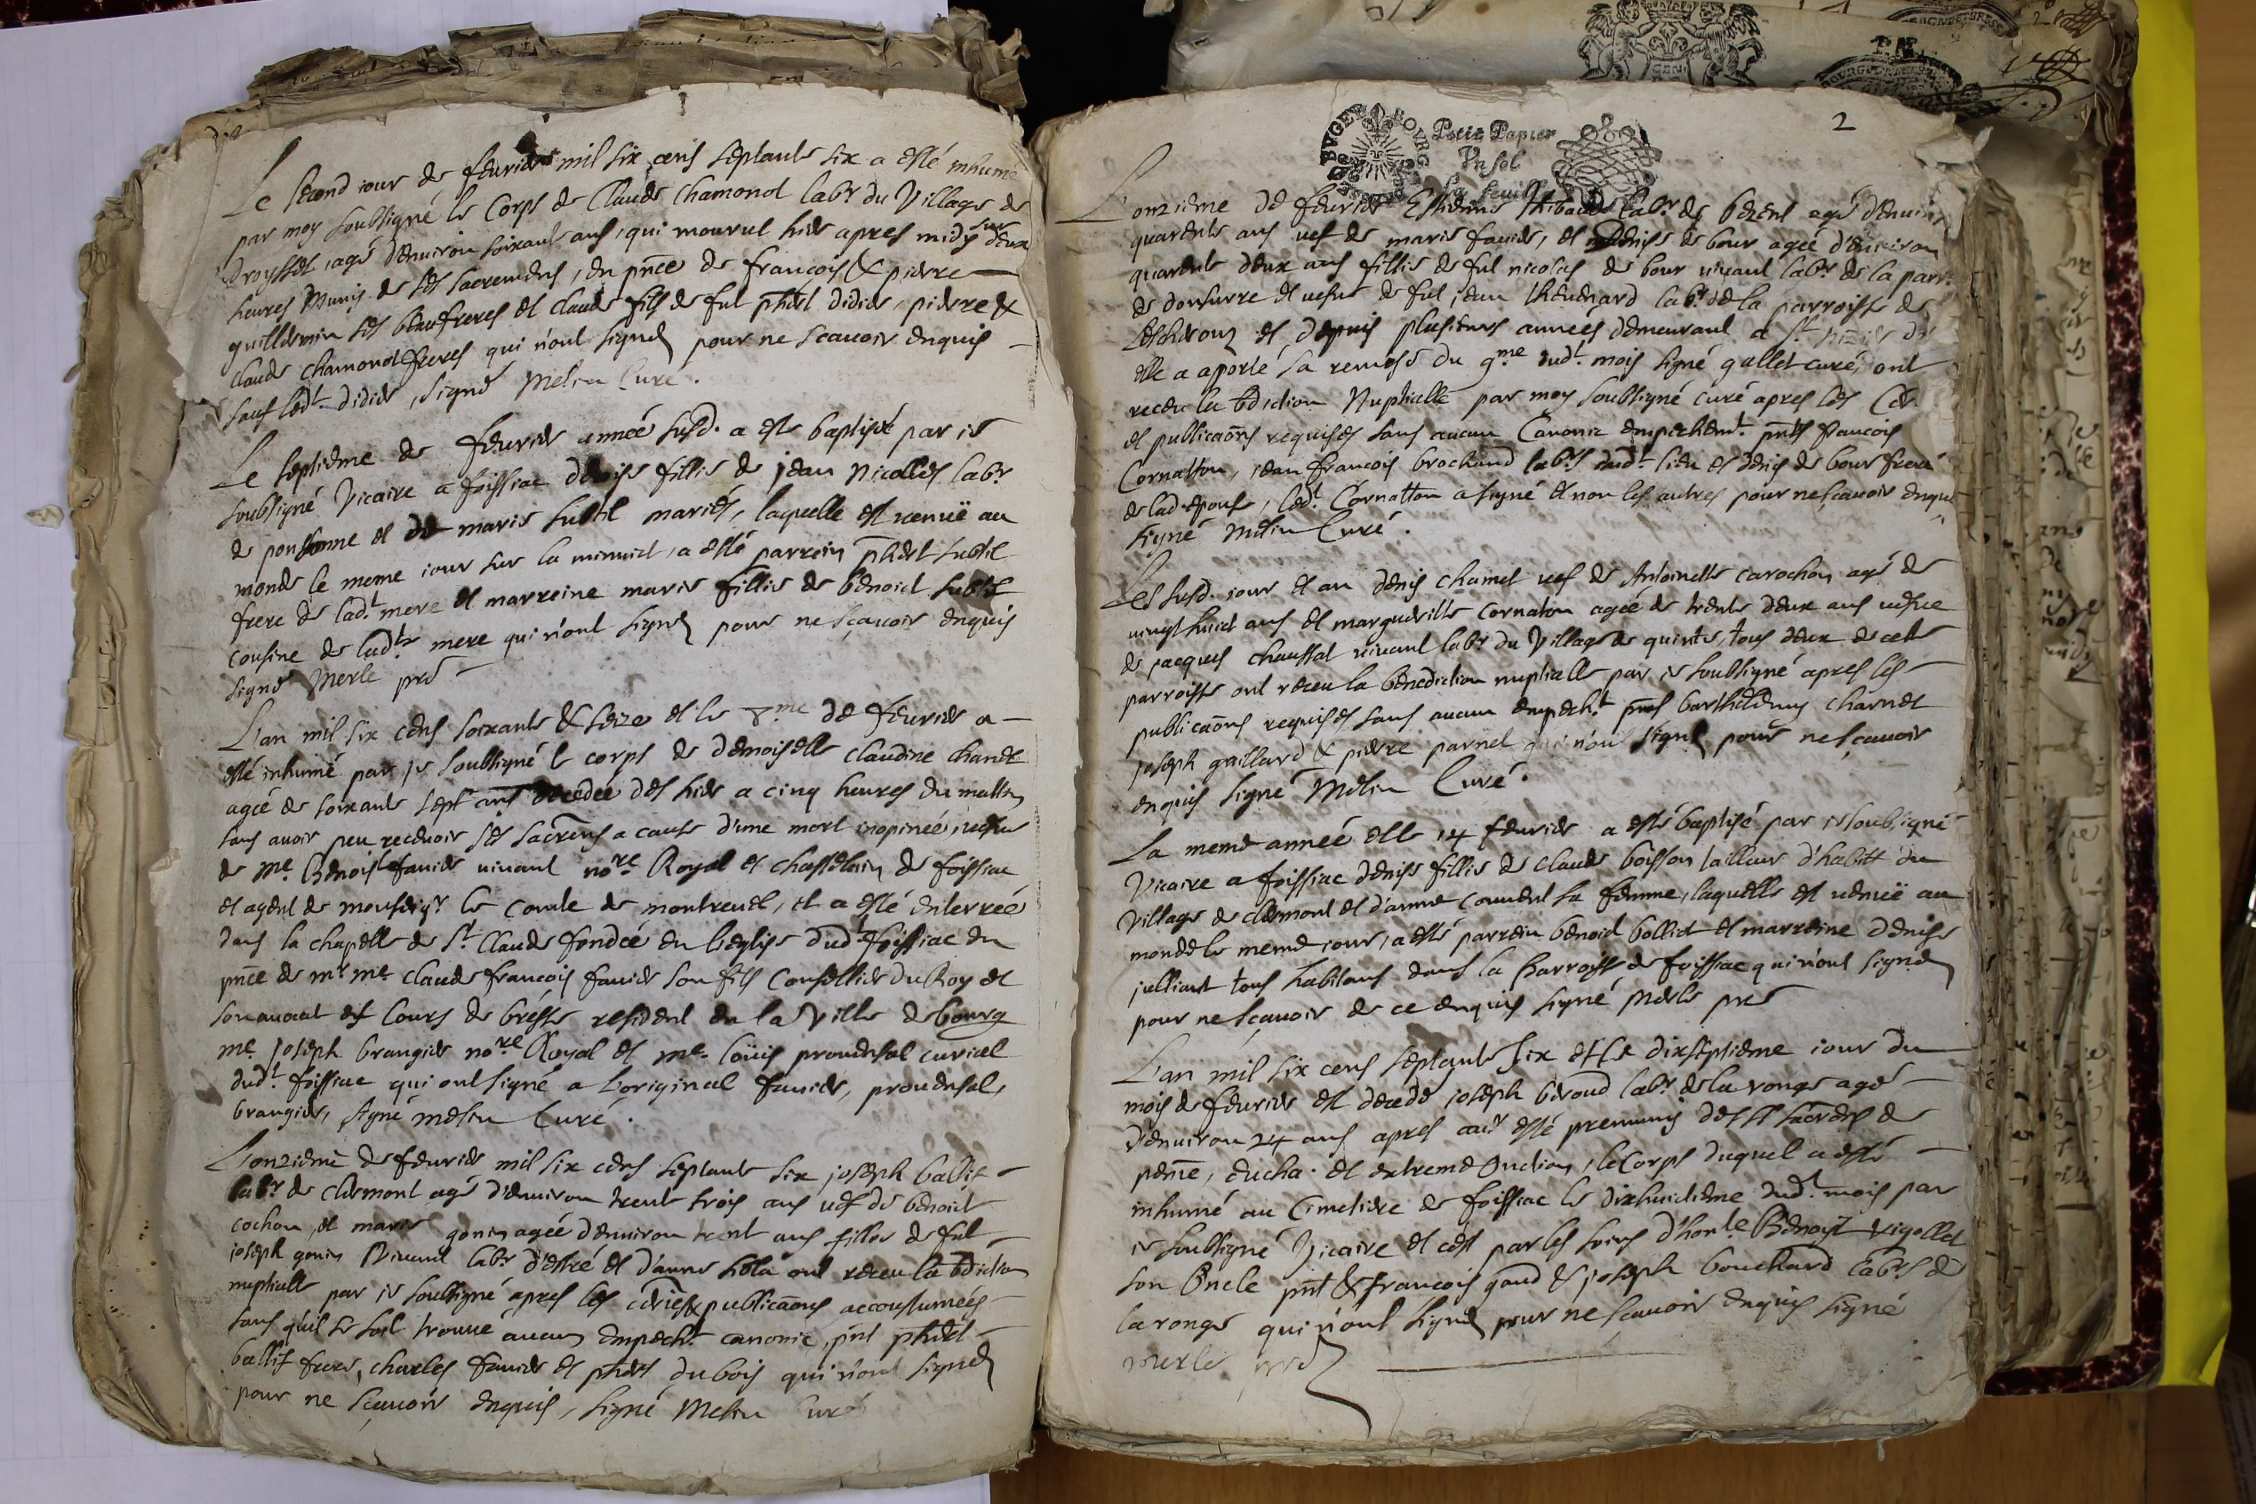 Le second iour de feurier mil six cens septante six a esté inhumé
par moy soubsigné le Corps de Claude Chamonot labr. du Village de
droysset, agé denuiron soixante ans, qui mourut hier apres midy sur deux
heures Munis de ses sacremens, en pnce de francois & pierre
guillermin ses beaufreres et claude fils de fut phil. didier, pierre &
Claude Chamonot freres qui n'ont signé pour ne scauoir enquis
sauf ledt. didier, signé Melin Curé.
Le septieme de feurier année susd. a esté baptisée par ie
soubsigné Vicaire a foissiac denise fillie de jean Nicollet labr.
de et de marie subtil mariés, laquelle est venuë au
monde le meme iour sur la minuict, a esté parrein phil. subtil
frere de lad.t mere et marreine marie fillie de benoict subtil
cousine de lad.te mere qui n'ont signé pour ne sçauoir enquis
signé Merle pre
L'an mil six cens soixante & seize et le 8me de feurier a
esté inhumé par je soubsigné le corps de demoiselle claudine
agée de soixante sept ans decedée des hier a cinq heures du mattin
sans auoir peu receuoir ses sacrens a cause d'une mort inopinée, vefue
de Me. Benoist fauier uiuant nore. Royal et chastelain de foissiac
et agent de monseigr. le Comte de montreuel, et a esté enterrée
dans la chapelle de St. Claude fondée en l'eglise dudt. foissiac en
pnce de mr. me. Claude francois fauier son fils Conseillier du Roy et
son auocat es Cours de bresse resident en la Ville de bourg
me. joseph brangier nore. Royal et me. loüis prouensal curial
dudt. foissiac qui ont signé a l'original fauier, prouensal,
brangier, signé melin Curé.
L'onzieme de feurier mil six cens septante six joseph ballif
labr. de clermont agé d'enuiron trente trois ans uef de benoite
cochon, et marie gonin agée d'enuiron trent ans fillie de fut
joseph gonin Viuant labr. d'estré et d'anne ont receu la bdiction
nuptialle par ie soubsigné apres les & publicaons accoustumées
sans qu'il se soit trouué aucun empecht. canonic, pnt phil.
ballif frere, charles fauier et phil. dubois qui n'ont signé
pour ne sçauoir enquis, signé Melin Curé
2
BVGEY BOVRG
Petit Papier
Vn sol
la feuille
L'onzieme de feurier Estienne thibaud labr. de berent agé d'enuiron
quarente ans uef de marie fauier, et denise de bour agée d'enuiron
quarente deux ans fillie de fut nicolas de bour uiuant labr. de la parr.
de donsurre et uefue de fut jean theuenard labr. de la parroisse de
et depuis plusieurs années demeurant a St.
elle a aporté sa remise du 9me dudt. mois signé gallet curé, ont
receu la bdiction Nuptialle par moy soubsigné curé apres les
et publicaons requises sans aucun Canonic empechemt. pnts francois
Cornatton, jean francois brochand labrs. dudt. lieu et denis de bour frere
de lad. epouse, ledt. Cornatton a signé et non les autres pour ne sçauoir enquis
signé Melin Curé.
Les susd. iour et an denis charnet uef de Antoinette carochon agé de
uingt huict ans et marguerite Cornaton agée de trente deux ans uefue
de jacques chaussat uiuant labr. du Village de quinte, tous deux de cette
parroisse ont receu la benediction nuptialle par ie soubsigné apres les
publicaons requises sans aucun empecht. pnts barthelemy charnet
joseph gaillard & pierre parnet qui n'ont signé pour ne sçauoir
enquis signé Melin Curé.
La meme année et le 14 feurier a esté baptisé par ie soubsigné
Vicaire a foissiac denise fillie de claude boisson tailleur d'habitt du
Village de clermont et d'anne conuent sa femme, laquelle est uenuë au
monde le meme iour, a esté parrein benoict bolliet et marreine denise
julliant tous habitans dans la Parroisse de foissiac qui n'ont signé
pour ne sçauoir de ce enquis signé Merle pre
L'an mil six cens septante six et le dixseptieme iour du
mois de feurier est decedé joseph beraud labr. de la ronge agé
d'enuiron 24 ans apres auoir esté premuny de ses sacrens de
pence, eucha. et extreme Onction, le Corps duquel a esté
inhumé au Cimetiere de foissiac le dixhuictieme dudt. mois par
ie soubsigné Vicaire et ce par les soins d'honle Benoist Vigollet
son Oncle pnt & francois gaud & joseph bouchard labrs. de
la ronge qui n'ont signé pour ne sçauoir enquis signé
Merle pre